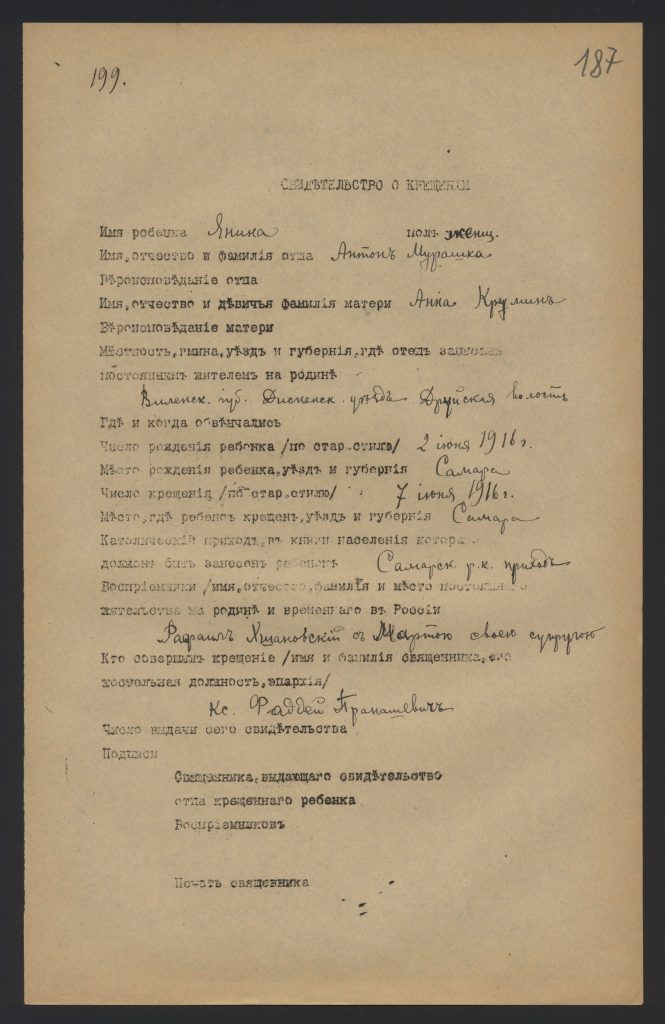 199.
187
СВИДѢТЕЛЬСТВО О КРЕЩЕНІИ
Имя ребенка Янина полъ женщ.
Имя,отчество и фамилія отца Антонъ Мурашка
Вѣроисповѣданіе отца
Имя,отчество и дѣвичья фамилія матери Анна Круминъ
Вѣроисповѣданіе матери
Мѣстность,гмина,уѣздъ и губернія,гдѣ отецъ записанъ
постояннымъ жителемъ на родинѣ
Виленск. губ. Дисненск. уѣздъ Друйская волость
Гдѣ и когда обвѣнчались
Число рожденія ребенка /по стар.стилю/ 2 іюня 1916 г.
Мѣсто рожденія ребенка,уѣздъ и губернія Самара
Число крещенія /по стар.стилю/ 7 іюня 1916 г.
Мѣсто,гдѣ ребенокъ крещенъ,уѣздъ и губернія Самара
Католическій приходъ,въ книги населенія котораго
долженъ быть занесенъ ребенокъ Самарск. р.к. приходъ
Воспріемники /имя,отчество,фамилія и мѣсто постояннаго
жительства на родинѣ и временнаго въ Россіи
Рафаилъ съ Мартою своею супругою
Кто совершилъ крещеніе /имя и фамилія священника,его
костельная должность,эпархія/
Кс. Фаддей Пранашевичъ
Число выдачи сего свидѣтельства
Подписи
Священника,выдающаго свидѣтельство
отца крещеннаго ребенка
Воспріемниковъ
Печать священника